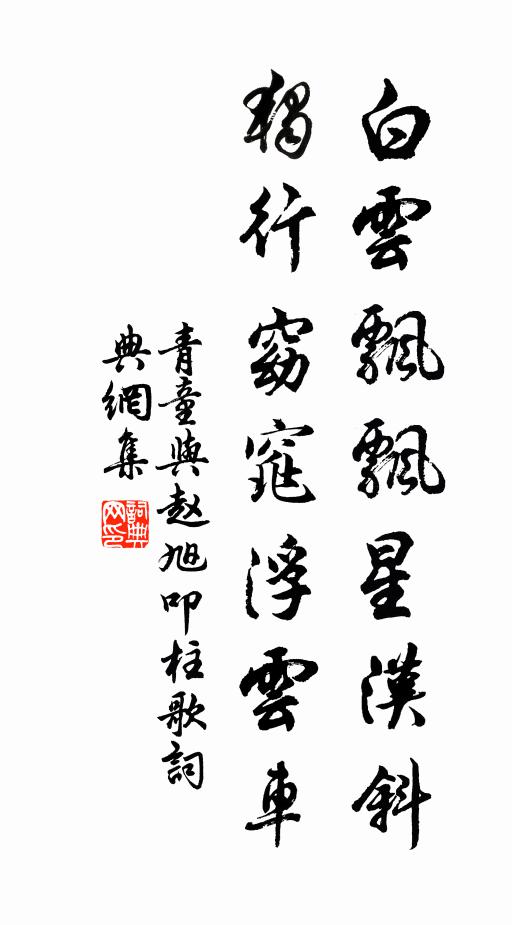 白雲飄飄星漢斜
獨行窈窕浮雲車
青童與赵旭叩柱歌詞
典網集
詞典网印